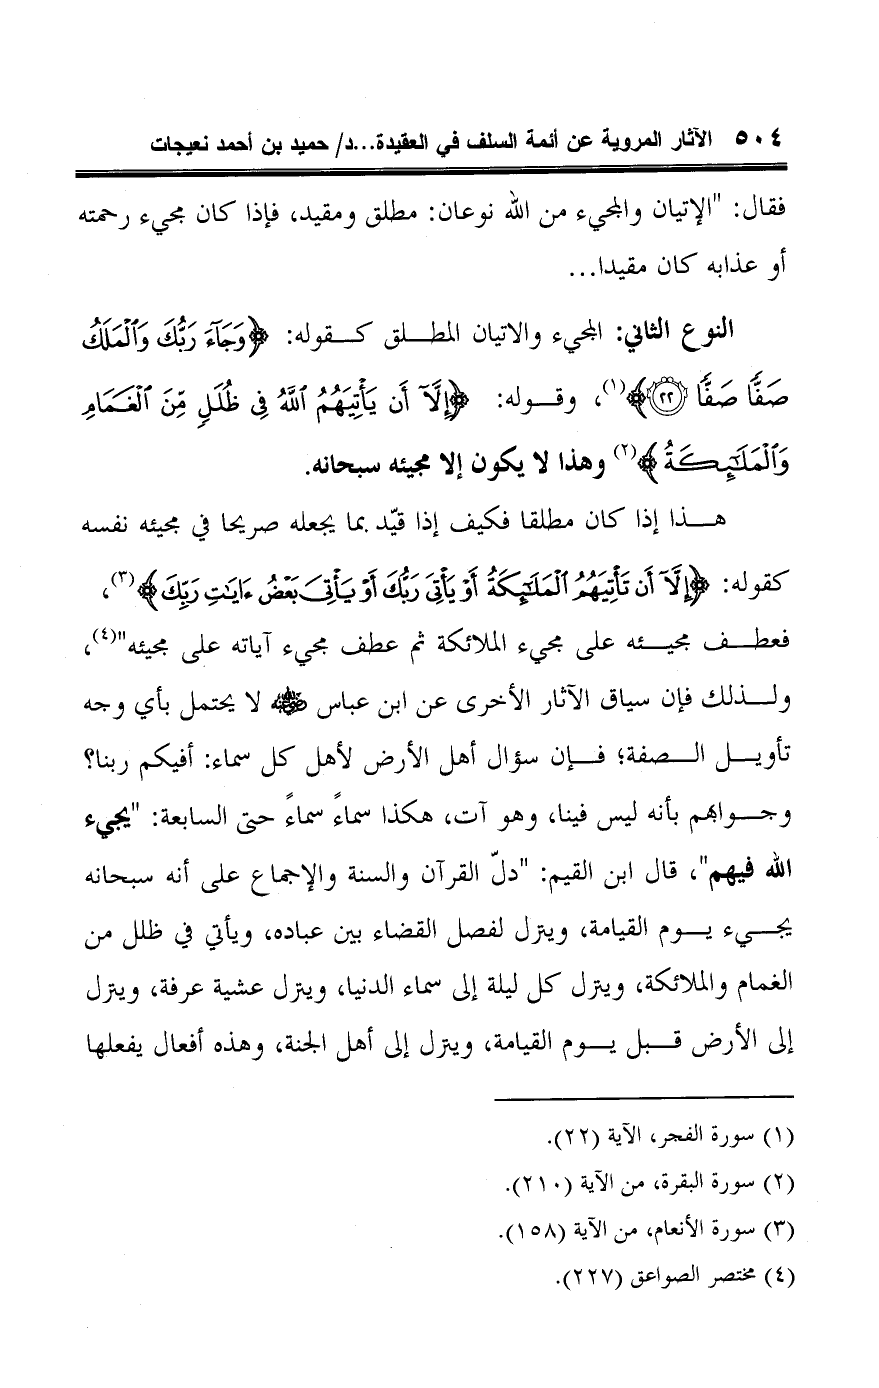 ٥٠٤ الآثار المروية عن أئمة السلف في العقيدة...د/ حميد بن أحمد نعيجات
فقال: "الإتيان والمجيء من الله نوعان: مطلق ومقيد، فإذا كان مجيء رحمته
أو عذابه كان مقيدا...
النوع الثاني: المجيء والاتيان المطلق كقوله: ﴿وَجَآءَ رَبُّكَ وَٱلْمَلَكُ
صَفًّا صَفًّا ۝٢٢﴾(١)، وقوله: ﴿إِلَّآ أَن يَأْتِيَهُمُ ٱللَّهُ فِى ظُلَلٍ مِّنَ ٱلْغَمَامِ
وَٱلْمَلَٰٓئِكَةُ﴾(٢) وهذا لا يكون إلا مجيئه سبحانه.
هذا إذا كان مطلقا فكيف إذا قيّد بما يجعله صريحا في مجيئه نفسه
كقوله: ﴿إِلَّآ أَن تَأْتِيَهُمُ ٱلْمَلَٰٓئِكَةُ أَوْ يَأْتِىَ رَبُّكَ أَوْ يَأْتِىَ بَعْضُ ءَايَٰتِ رَبِّكَ﴾(٣)،
فعطف مجيئه على مجيء الملائكة ثم عطف مجيء آياته على مجيئه"(٤)،
ولذلك فإن سياق الآثار الأخرى عن ابن عباس ﵁ لا يحتمل بأي وجه
تأويل الصفة؛ فإن سؤال أهل الأرض لأهل كل سماء: أفيكم ربنا؟
وجوابهم بأنه ليس فينا، وهو آت، هكذا سماءً سماءً حتى السابعة: "يجيء
الله فيهم"، قال ابن القيم: "دلّ القرآن والسنة والإجماع على أنه سبحانه
يجيء يوم القيامة، وينزل لفصل القضاء بين عباده، ويأتي في ظلل من
الغمام والملائكة، وينزل كل ليلة إلى سماء الدنيا، وينزل عشية عرفة، وينزل
إلى الأرض قبل يوم القيامة، وينزل إلى أهل الجنة، وهذه أفعال يفعلها
(١) سورة الفجر، الآية (٢٢).
(٢) سورة البقرة، من الآية (٢١٠).
(٣) سورة الأنعام، من الآية (١٥٨).
(٤) مختصر الصواعق (٢٢٧).